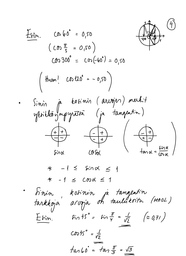 ④
Esim. cos 60° = 0,50
(cos π/3 = 0,50)
cos 300° = cos(-60°) = 0,50
(Huom! cos 120° = -0,50)
• Sinin ja kosinin (arvojen) merkit
yksikköympyrästä (ja tangentin)
sin α cos α (tan α = sin α / cos α)
* -1 ≤ sin α ≤ 1
* -1 ≤ cos α ≤ 1
• Sinin, kosinin ja tangentin
tarkkoja arvoja on taulukoitu (MAOL)
Esim. sin 45° = sin π/4 = 1/√2
cos 45° = 1/√2
tan 60° = tan π/3 = √3